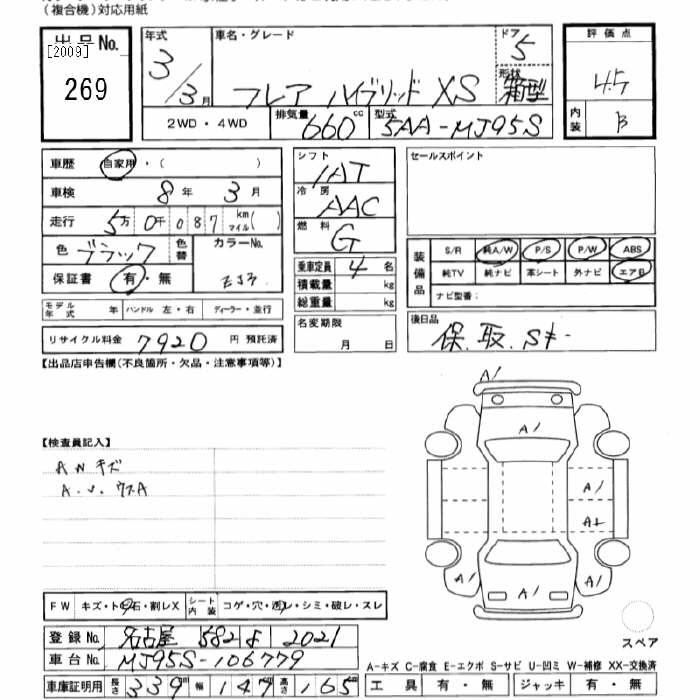 (複合機)対応用紙
出品No. 年式 車名・グレード ドア 5 評価点
[2009] 3 形状
269 3月 フレア ハイブリッド XS 箱型 4.5
2WD・4WD 排気量 660 cc 型式 5AA-MJ95S 内装 B
車歴 自家用・( ) シフト IAT セールスポイント
車検 8年 3月 冷房 AAC
走行 5万 0千 0 8 7 km マイル( ) 燃料 G
色 ブラック 色替 カラーNo. ZJ3 装備品 S/R 純A/W P/S P/W ABS
保証書 有・無 乗車定員 4 名 純TV 純ナビ 本シート 外ナビ エアB
積載量 kg ナビ型番:
モデル年式 年 ハンドル 左・右 ディーラー・並行 総重量 kg
リサイクル料金 7920 円 預託済 名変期限 月 日 後日品 保.取.Sキー
【出品店申告欄(不良箇所・欠品・注意事項等)】
A1
A1
【検査員記入】
AW キズ
A.U.ウスA
A1
A1
A1 A1
FW キズ・トビ石・割レX シート内装 コゲ・穴・スレ・シミ・破レ・スレ
登録No. 名古屋 582 よ 2021 スペア
車台No. MJ95S-106779 A-キズ C-腐食 E-エクボ S-サビ U-凹ミ W-補修 XX-交換済
車庫証明用 長さ 339 幅 147 高さ 165 工具 有・無 ジャッキ 有・無